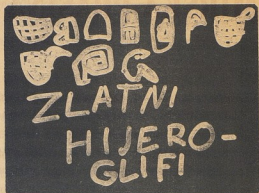 ZLATNI
HIJERO-
GLIFI